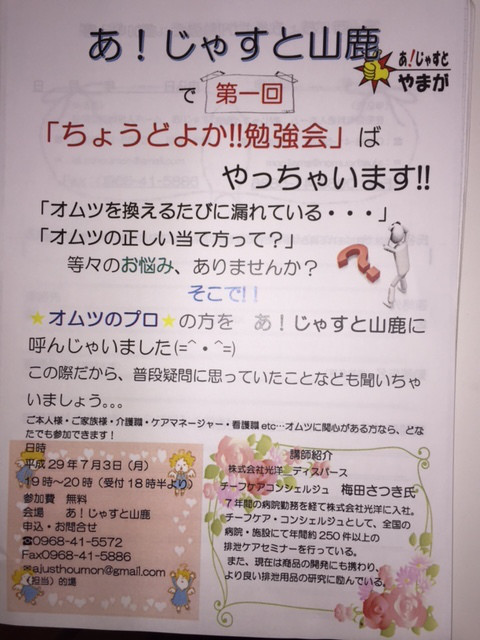 あ！じゃすと山鹿
あ！じゃすと
やまが
で 第一回
「ちょうどよか!!勉強会」ば
やっちゃいます!!
「オムツを換えるたびに漏れている・・・」
「オムツの正しい当て方って？」
等々のお悩み、ありませんか？
そこで!!
★オムツのプロ★の方を　あ！じゃすと山鹿に
呼んじゃいました(=^・^=)
この際だから、普段疑問に思っていたことなども聞いちゃ
いましょう。。。
ご本人様・ご家族様・介護職・ケアマネージャー・看護職 etc…オムツに関心がある方なら、どな
たでも参加できます！
日時
平成29年7月3日（月）
19時～20時（受付18時半より）
参加費　無料
会場　あ！じゃすと山鹿
申込・お問合せ
☎0968-41-5572
Fax0968-41-5886
✉ajusthoumon@gmail.com
（担当）的場
講師紹介
株式会社光洋―ディスパース
チーフケアコンシェルジュ　梅田さつき氏
7年間の病院勤務を経て株式会社光洋に入社。
チーフケア・コンシェルジュとして、全国の
病院・施設にて年間約250件以上の
排泄ケアセミナーを行っている。
また、現在は商品の開発にも携わり、
より良い排泄用品の研究に励んでいる。